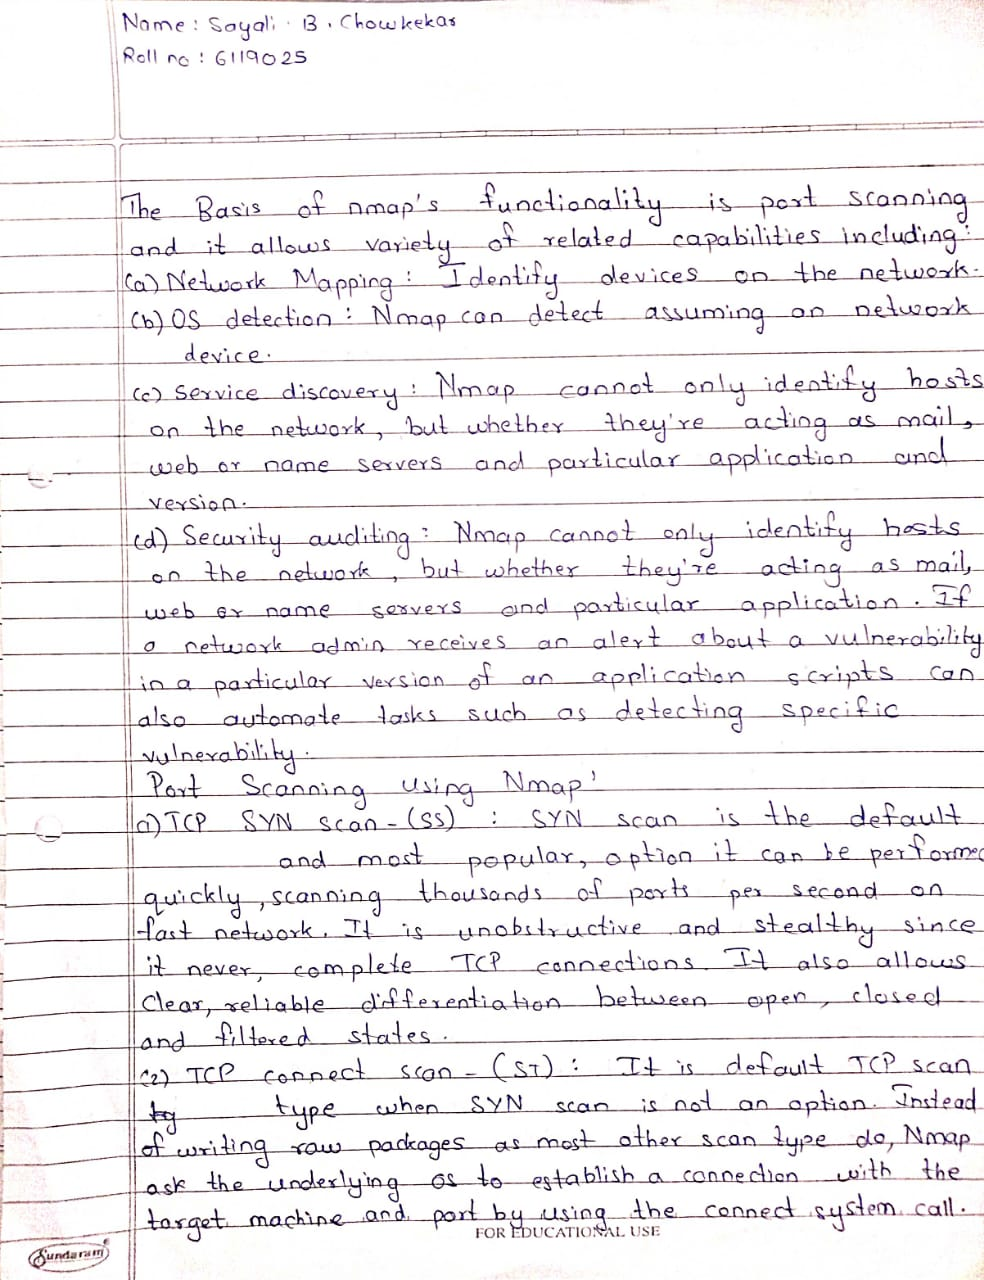 Name : Sayali . B . Chowkekar
Roll no : 6119025
The Basis of nmap's functionality is port scanning
and it allows variety of related capabilities including :
(a) Network Mapping : Identify devices on the network.
(b) OS detection : Nmap can detect assuming on network
device.
(c) Service discovery : Nmap cannot only identify hosts
on the network, but whether they're acting as mail,
web or name servers and particular application and
version.
(d) Security auditing : Nmap cannot only identify hosts
on the network , but whether they're acting as mail,
web or name servers and particular application. If
a network admin receives an alert about a vulnerability
in a particular version of an application scripts can
also automate tasks such as detecting specific
vulnerability.
Port Scanning using Nmap'
1) TCP SYN scan - (SS) : SYN scan is the default
and most popular, option it can be performed
quickly , scanning thousands of ports per second on
fast network. It is unobstructive and stealthy since
it never, complete TCP connections. It also allows
Clear, reliable differentiation between open, closed
and filtered states.
(2) TCP connect scan - (ST) : It is default TCP scan
ty type when SYN scan is not an option. Instead
of writing raw packages as most other scan type do, Nmap
ask the underlying os to establish a connection with the
target machine and port by using the connect system call.
FOR EDUCATIONAL USE
Sundaram